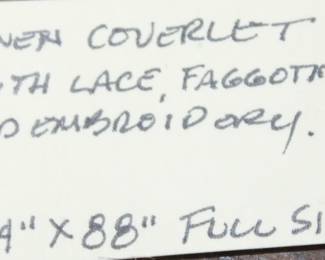 NEN COVERLET
TH LACE, FAGGOTI
D EMBROIDERY.
4" X 88" FULL SI